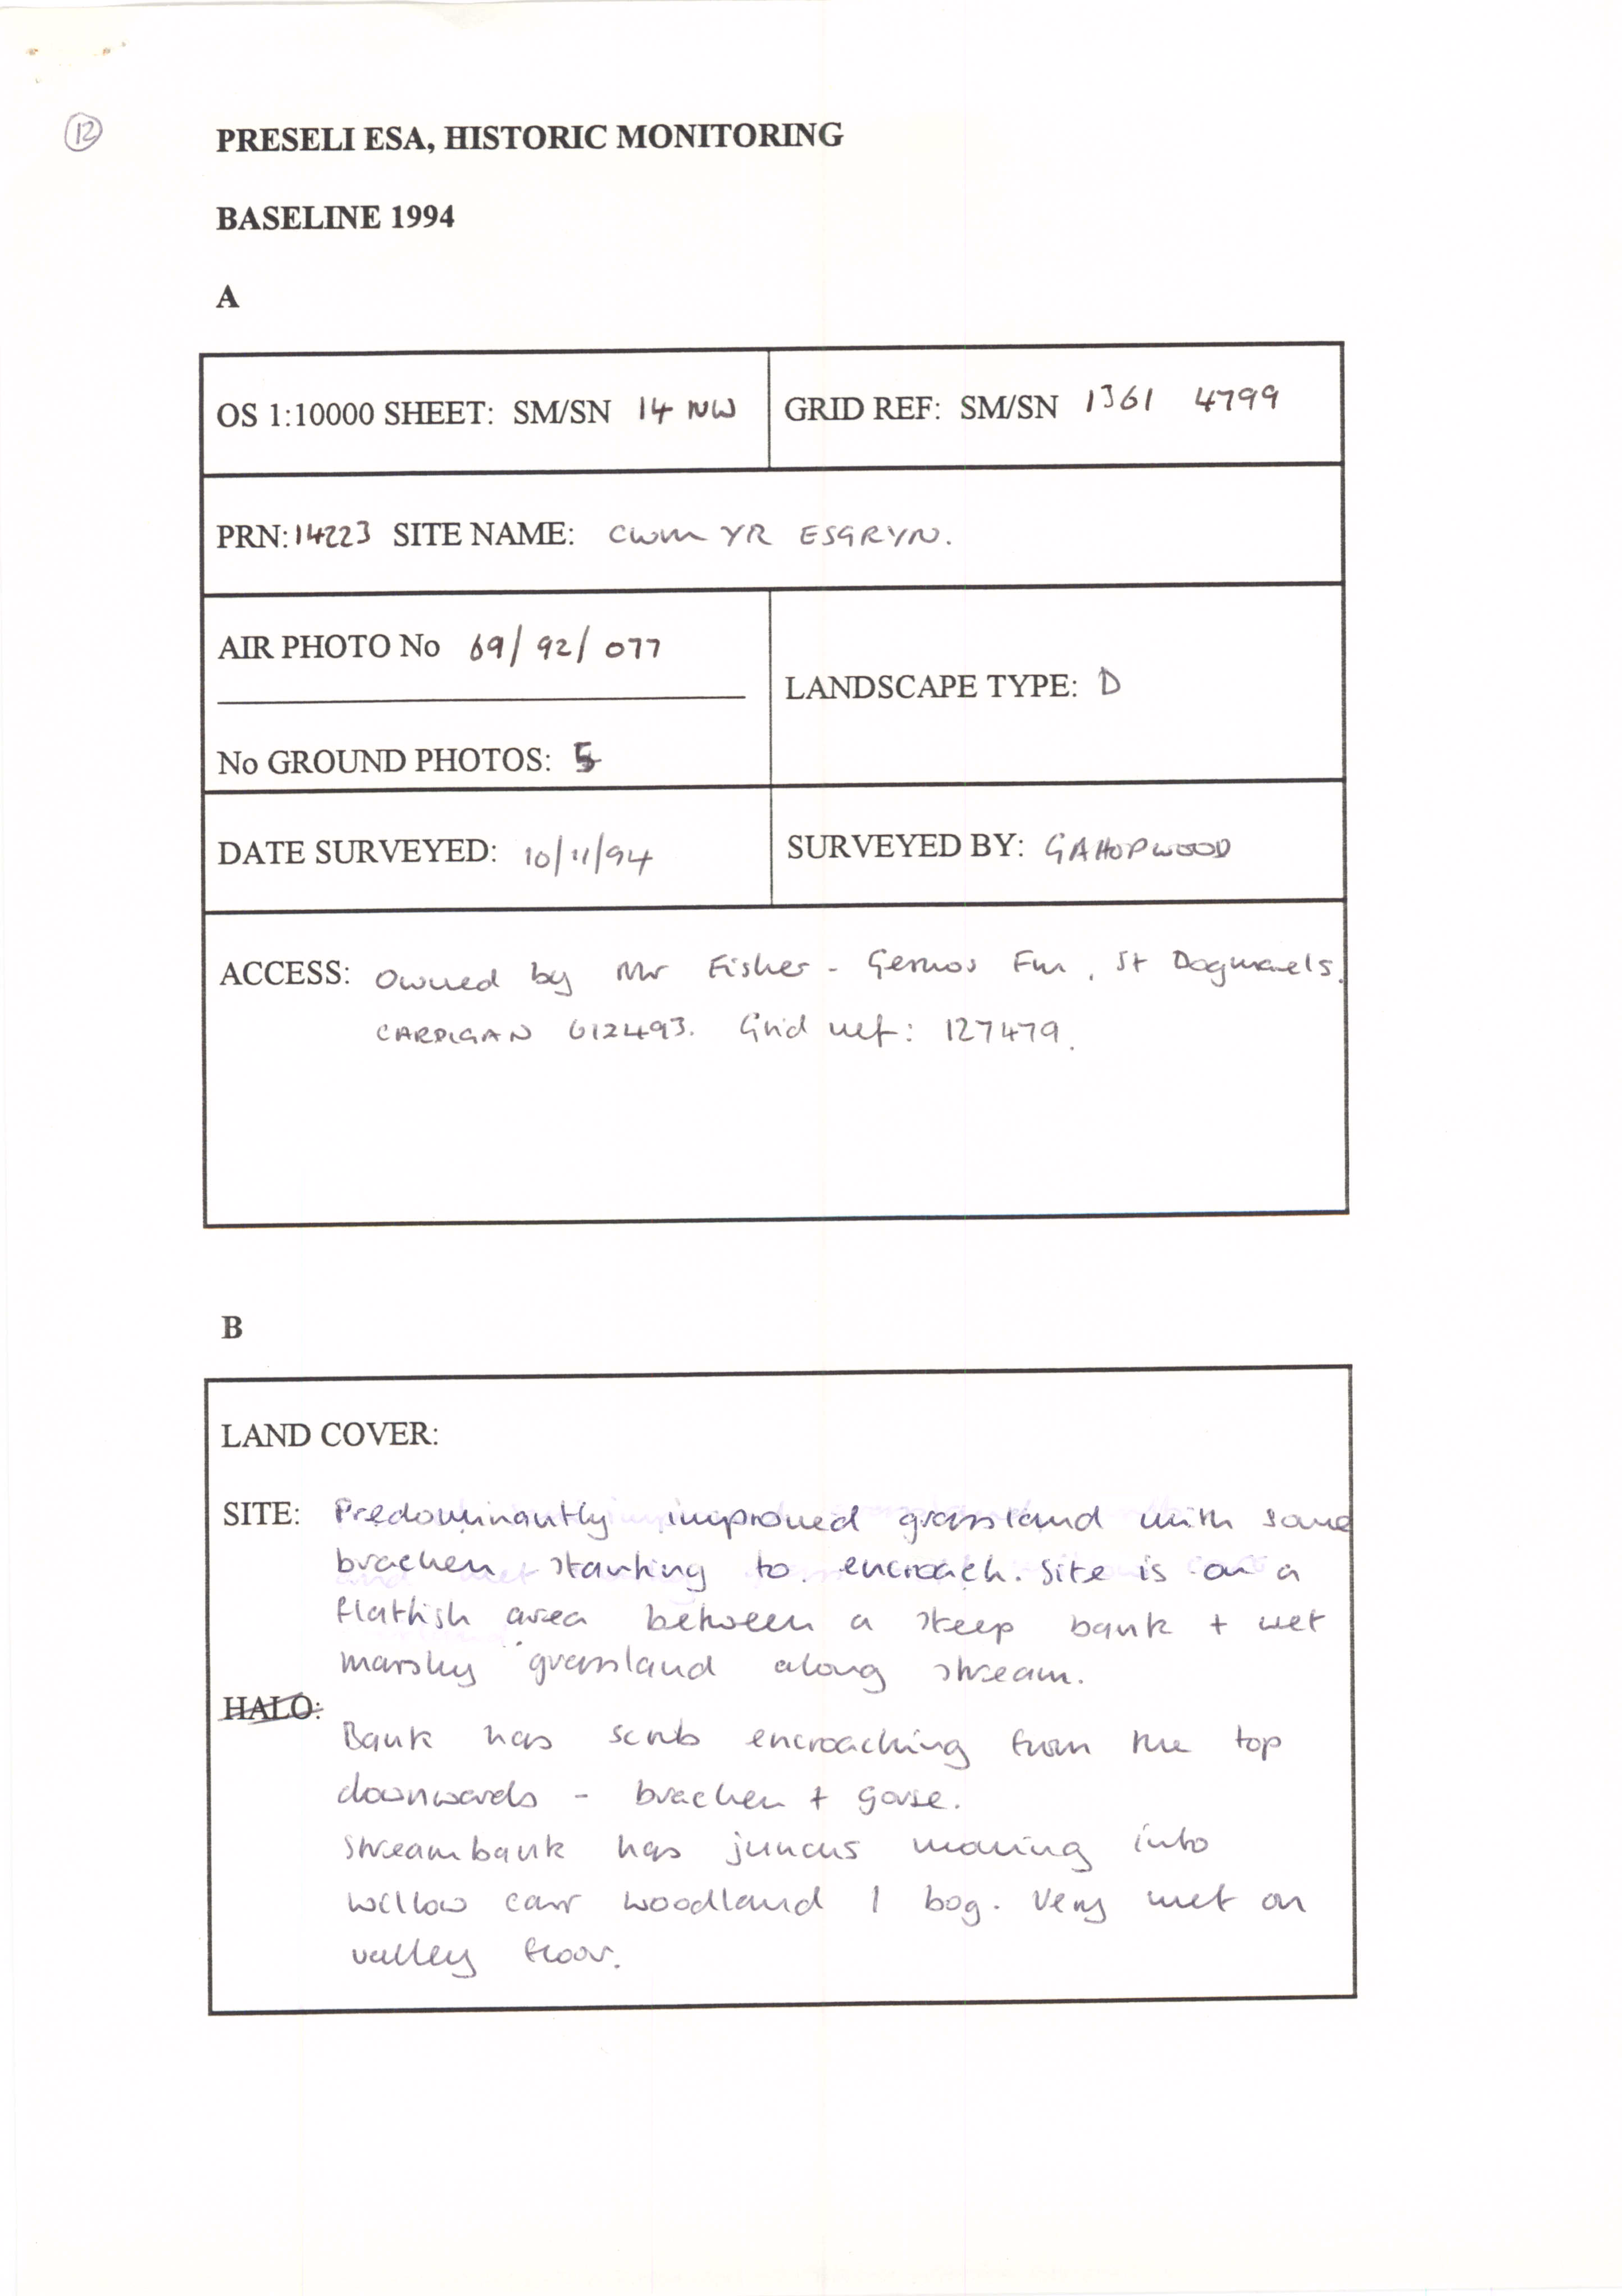 12
PRESELI ESA, HISTORIC MONITORING
BASELINE 1994
A
OS 1:10000 SHEET: SM/SN 14 NW
GRID REF: SM/SN 1361 4799
PRN: 14223 SITE NAME: CWM YR ESGRYN.
AIR PHOTO No 69/92/077
LANDSCAPE TYPE: D
No GROUND PHOTOS: 5
DATE SURVEYED: 10/11/94
SURVEYED BY: GAHOPWOOD
ACCESS: Owned by Mr Fisher - Gernos Fm, St Dogmaels.
CARDIGAN 612493. Grid ref: 127479.
B
LAND COVER:
SITE: Predominantly improved grassland with some
bracken starting to encroach. Site is on a
flattish area between a steep bank + wet
marshy grassland along stream.
HALO:
Bank has scrub encroaching from the top
downwards - bracken + gorse.
Streambank has juncus moving into
willow carr woodland / bog. Very wet on
valley floor.